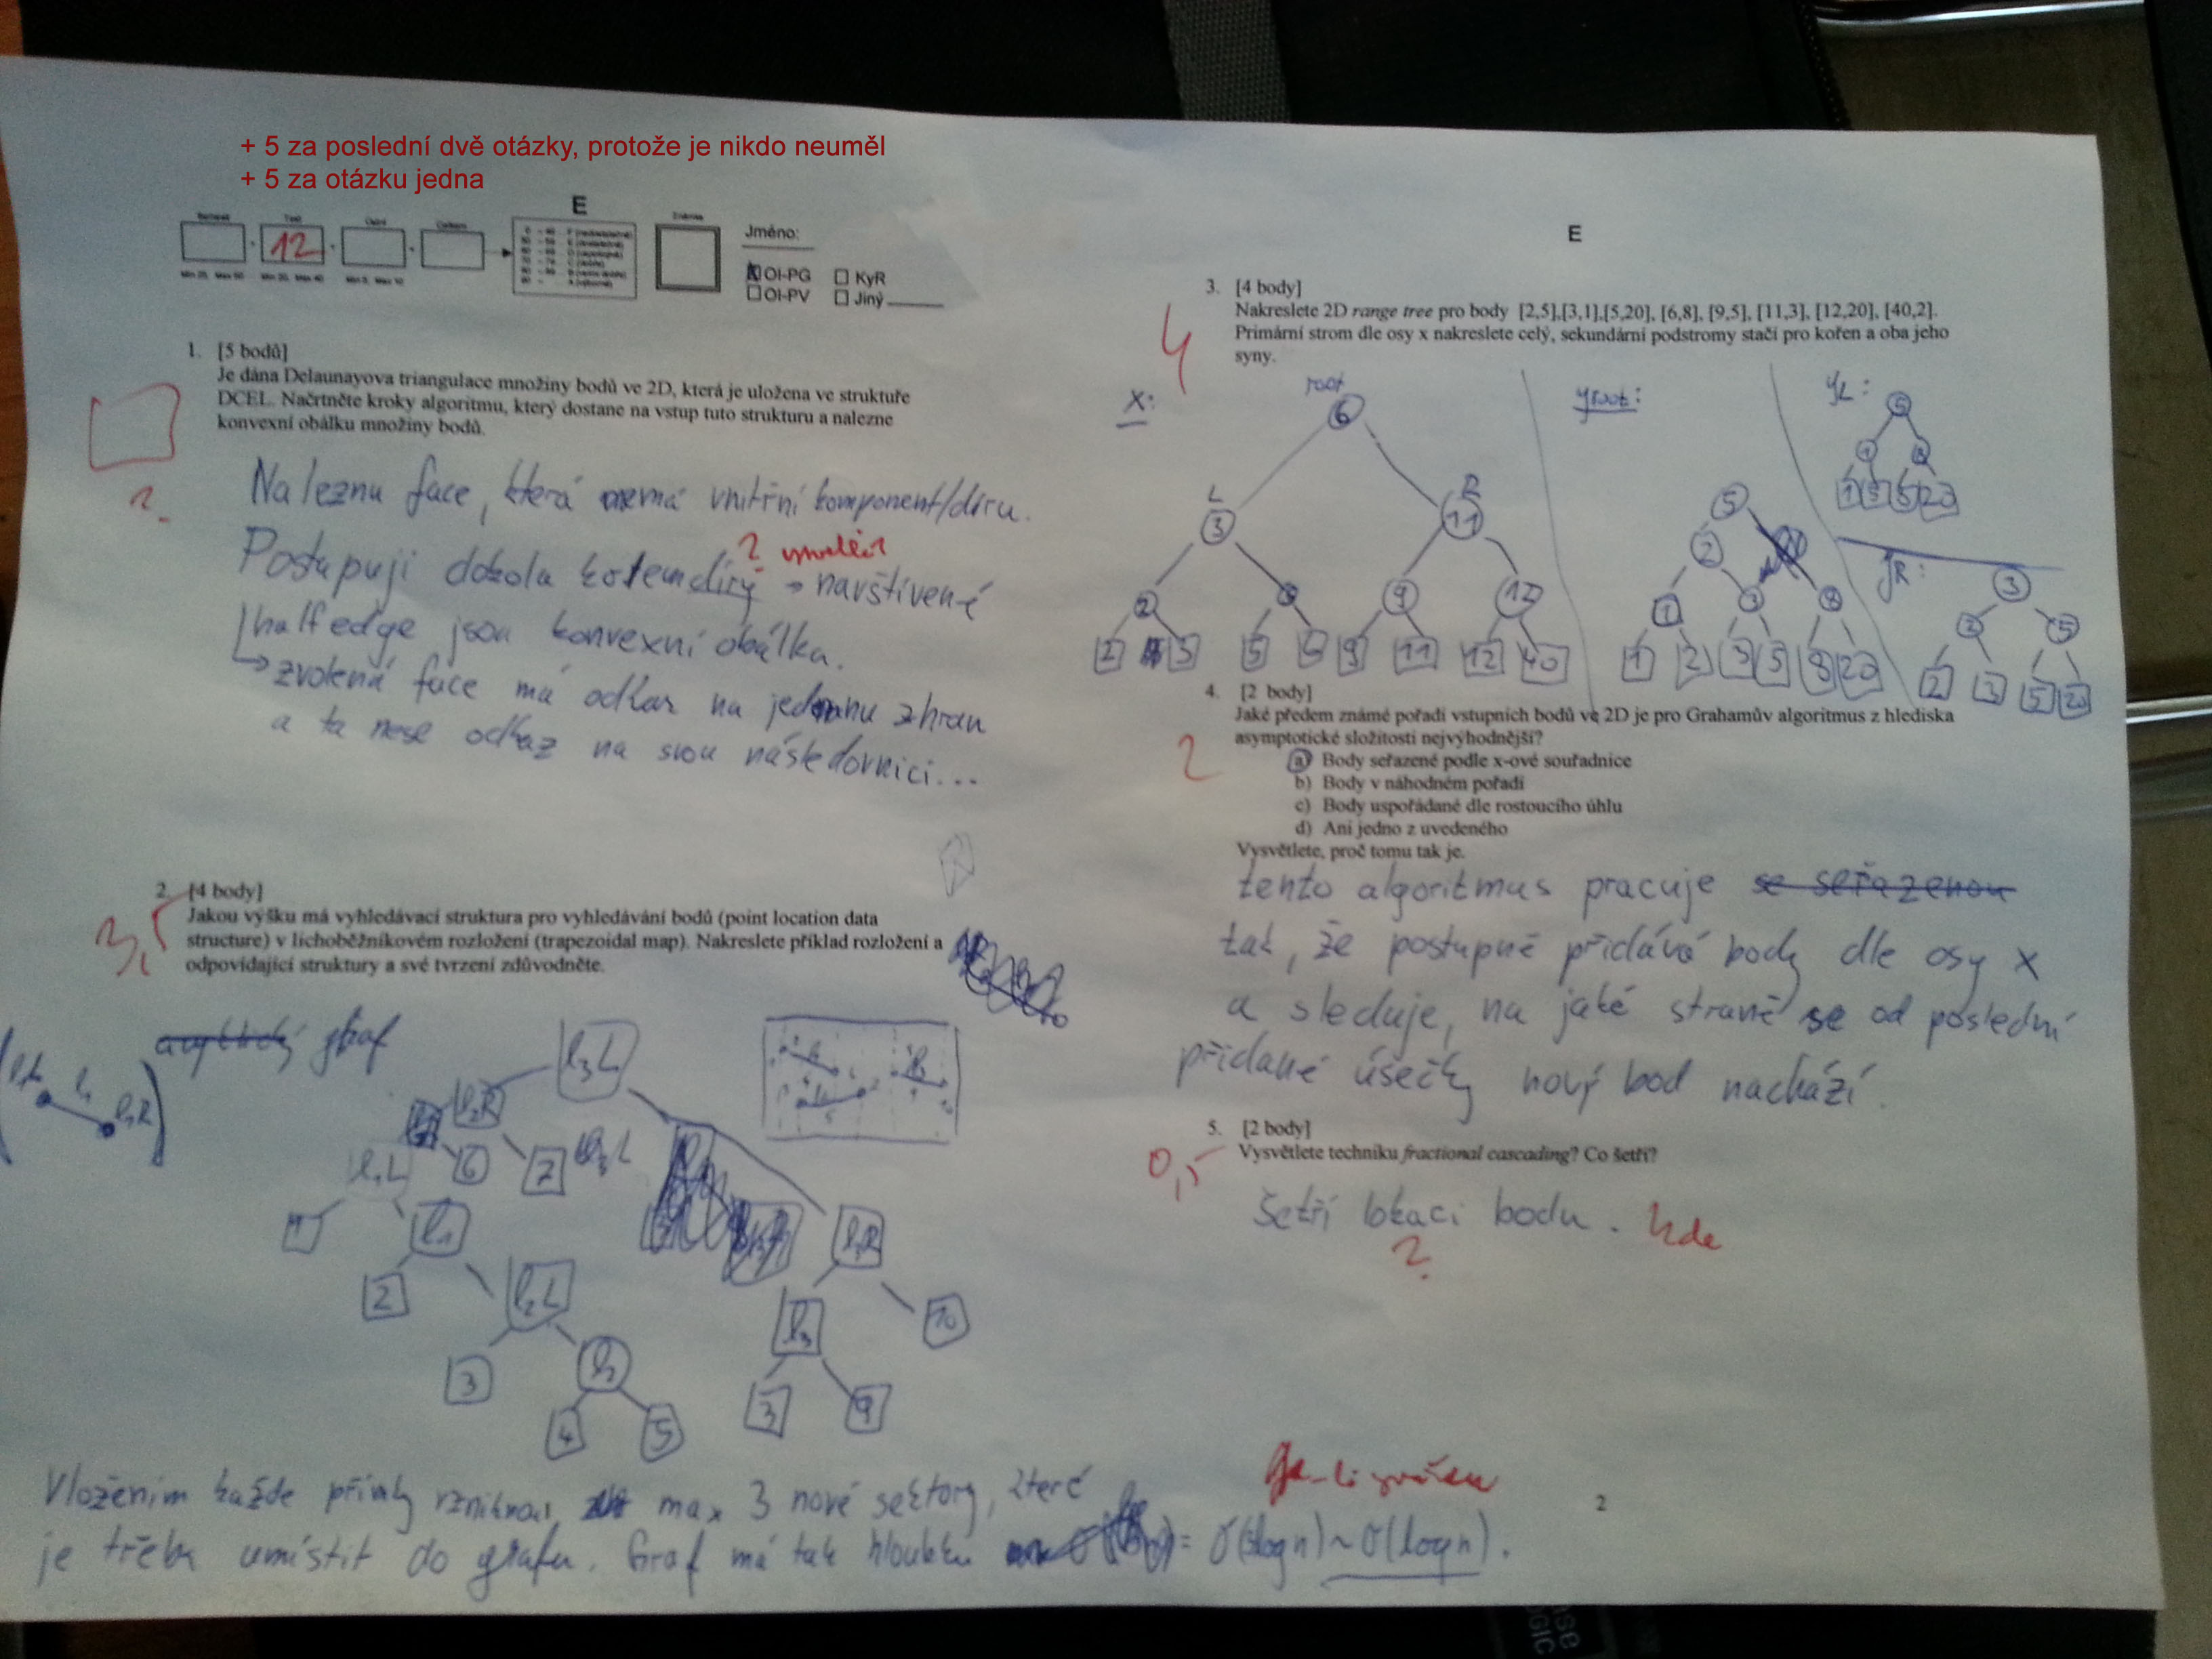 + 5 za poslední dvě otázky, protože je nikdo neuměl
+ 5 za otázku jedna
E
12
Jméno:
OI-PG
KyR
OI-PV
Jiný
1. [5 bodů]
Je dána Delaunayova triangulace množiny bodů ve 2D, která je uložena ve struktuře
DCEL. Načrtněte kroky algoritmu, který dostane na vstup tuto strukturu a nalezne
konvexní obálku množiny bodů.
?
Naleznu face, která nemá vnitřní komponent/díru.
Postupuji dokola kolem díry → navštívené
?
halfedge jsou konvexní obálka.
↳ zvolená face má odkaz na jednu z hran
a ta nese odkaz na svou následovnici...
2. [4 body]
3,5
Jakou výšku má vyhledávací struktura pro vyhledávání bodů (point location data
structure) v lichoběžníkovém rozložení (trapezoidal map). Nakreslete příklad rozložení a
odpovídající struktury a své tvrzení zdůvodněte.
graf
l3L
l2R
6
7
l1L
1
l1
2
l2L
3
l2
4
5
l3R
l3
10
9
Vložením každé přímky vzniknou max 3 nové sektory, které
je třeba umístit do grafu. Graf má tak hloubku = O(3log n) ~ O(log n).
E
3. [4 body]
4
Nakreslete 2D range tree pro body [2,5],[3,1],[5,20], [6,8], [9,5], [11,3], [12,20], [40,2].
Primární strom dle osy x nakreslete celý, sekundární podstromy stačí pro kořen a oba jeho
syny.
x:
root
6
L
3
R
11
2
5
9
12
2 3 5 6 9 11 12 40
yroot:
5
2
8
1
3
1 2 3 5 8 20
yL:
5
1
8
1 5 8 20
yR:
3
2
5
2 3 5 20
4. [2 body]
2
Jaké předem známé pořadí vstupních bodů ve 2D je pro Grahamův algoritmus z hlediska
asymptotické složitosti nejvýhodnější?
a) Body seřazené podle x-ové souřadnice
b) Body v náhodném pořadí
c) Body uspořádané dle rostoucího úhlu
d) Ani jedno z uvedeného
Vysvětlete, proč tomu tak je.
tento algoritmus pracuje se seřazenou
tak, že postupně přidává body dle osy x
a sleduje, na jaké straně se od poslední
přidané úsečky nový bod nachází.
5. [2 body]
0,5
Vysvětlete techniku fractional cascading? Co šetří?
Šetří lokaci bodu. kde
?
2